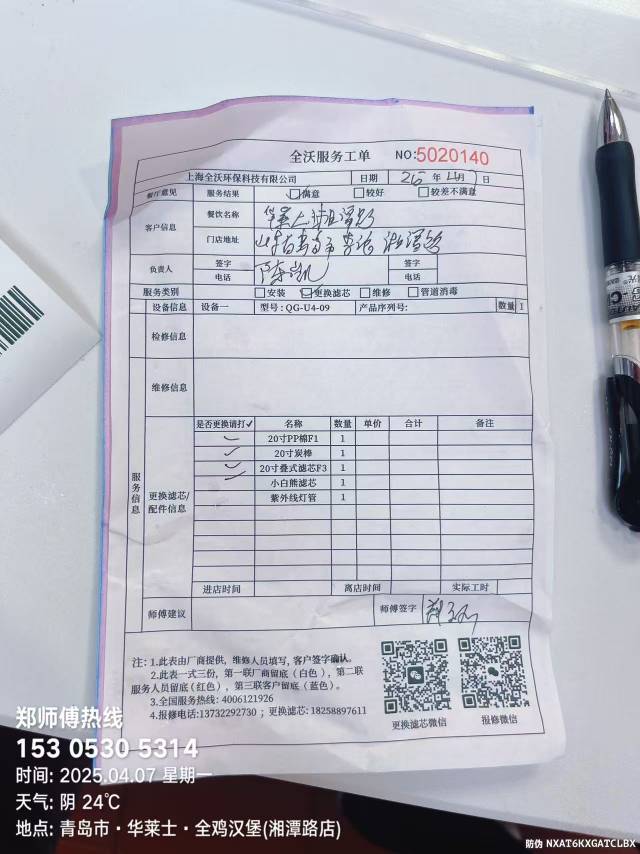 全沃服务工单 NO:5020140
上海全沃环保科技有限公司 日期 年 月7日
餐厅意见 服务结果 ☑满意 □较好 □较差不满意
客户信息 餐饮名称 华莱士
门店地址 山东省青岛市李沧 湘潭路
负责人 签字 签字
电话 电话
服务类别 □安装 ☑更换滤芯 □维修 □管道消毒
设备信息 设备一 型号:QG-U4-09 产品序列号: 数量 1
检修信息
维修信息
服务信息
更换滤芯/配件信息
是否更换请打✓ 名称 数量 单价 合计 备注
✓ 20寸PP棉F1 1
✓ 20寸炭棒 1
✓ 20寸叠式滤芯F3 1
✓ 小白熊滤芯 1
紫外线灯管 1
进店时间 离店时间 实际工时
师傅建议 师傅签字
注:1.此表由厂商提供,维修人员填写,客户签字确认.
2.此表一式三份,第一联厂商留底(白色),第二联
服务人员留底(红色),第三联客户留底(蓝色)。
3.全国服务热线: 4006121926
4.报修电话:13732292730 ; 更换滤芯: 18258897611
更换滤芯微信 报修微信
郑师傅热线
153 0530 5314
时间: 2025.04.07 星期一
天气: 阴 24℃
地点: 青岛市·华莱士·全鸡汉堡(湘潭路店)
防伪 NXAT6KXGATCLBX